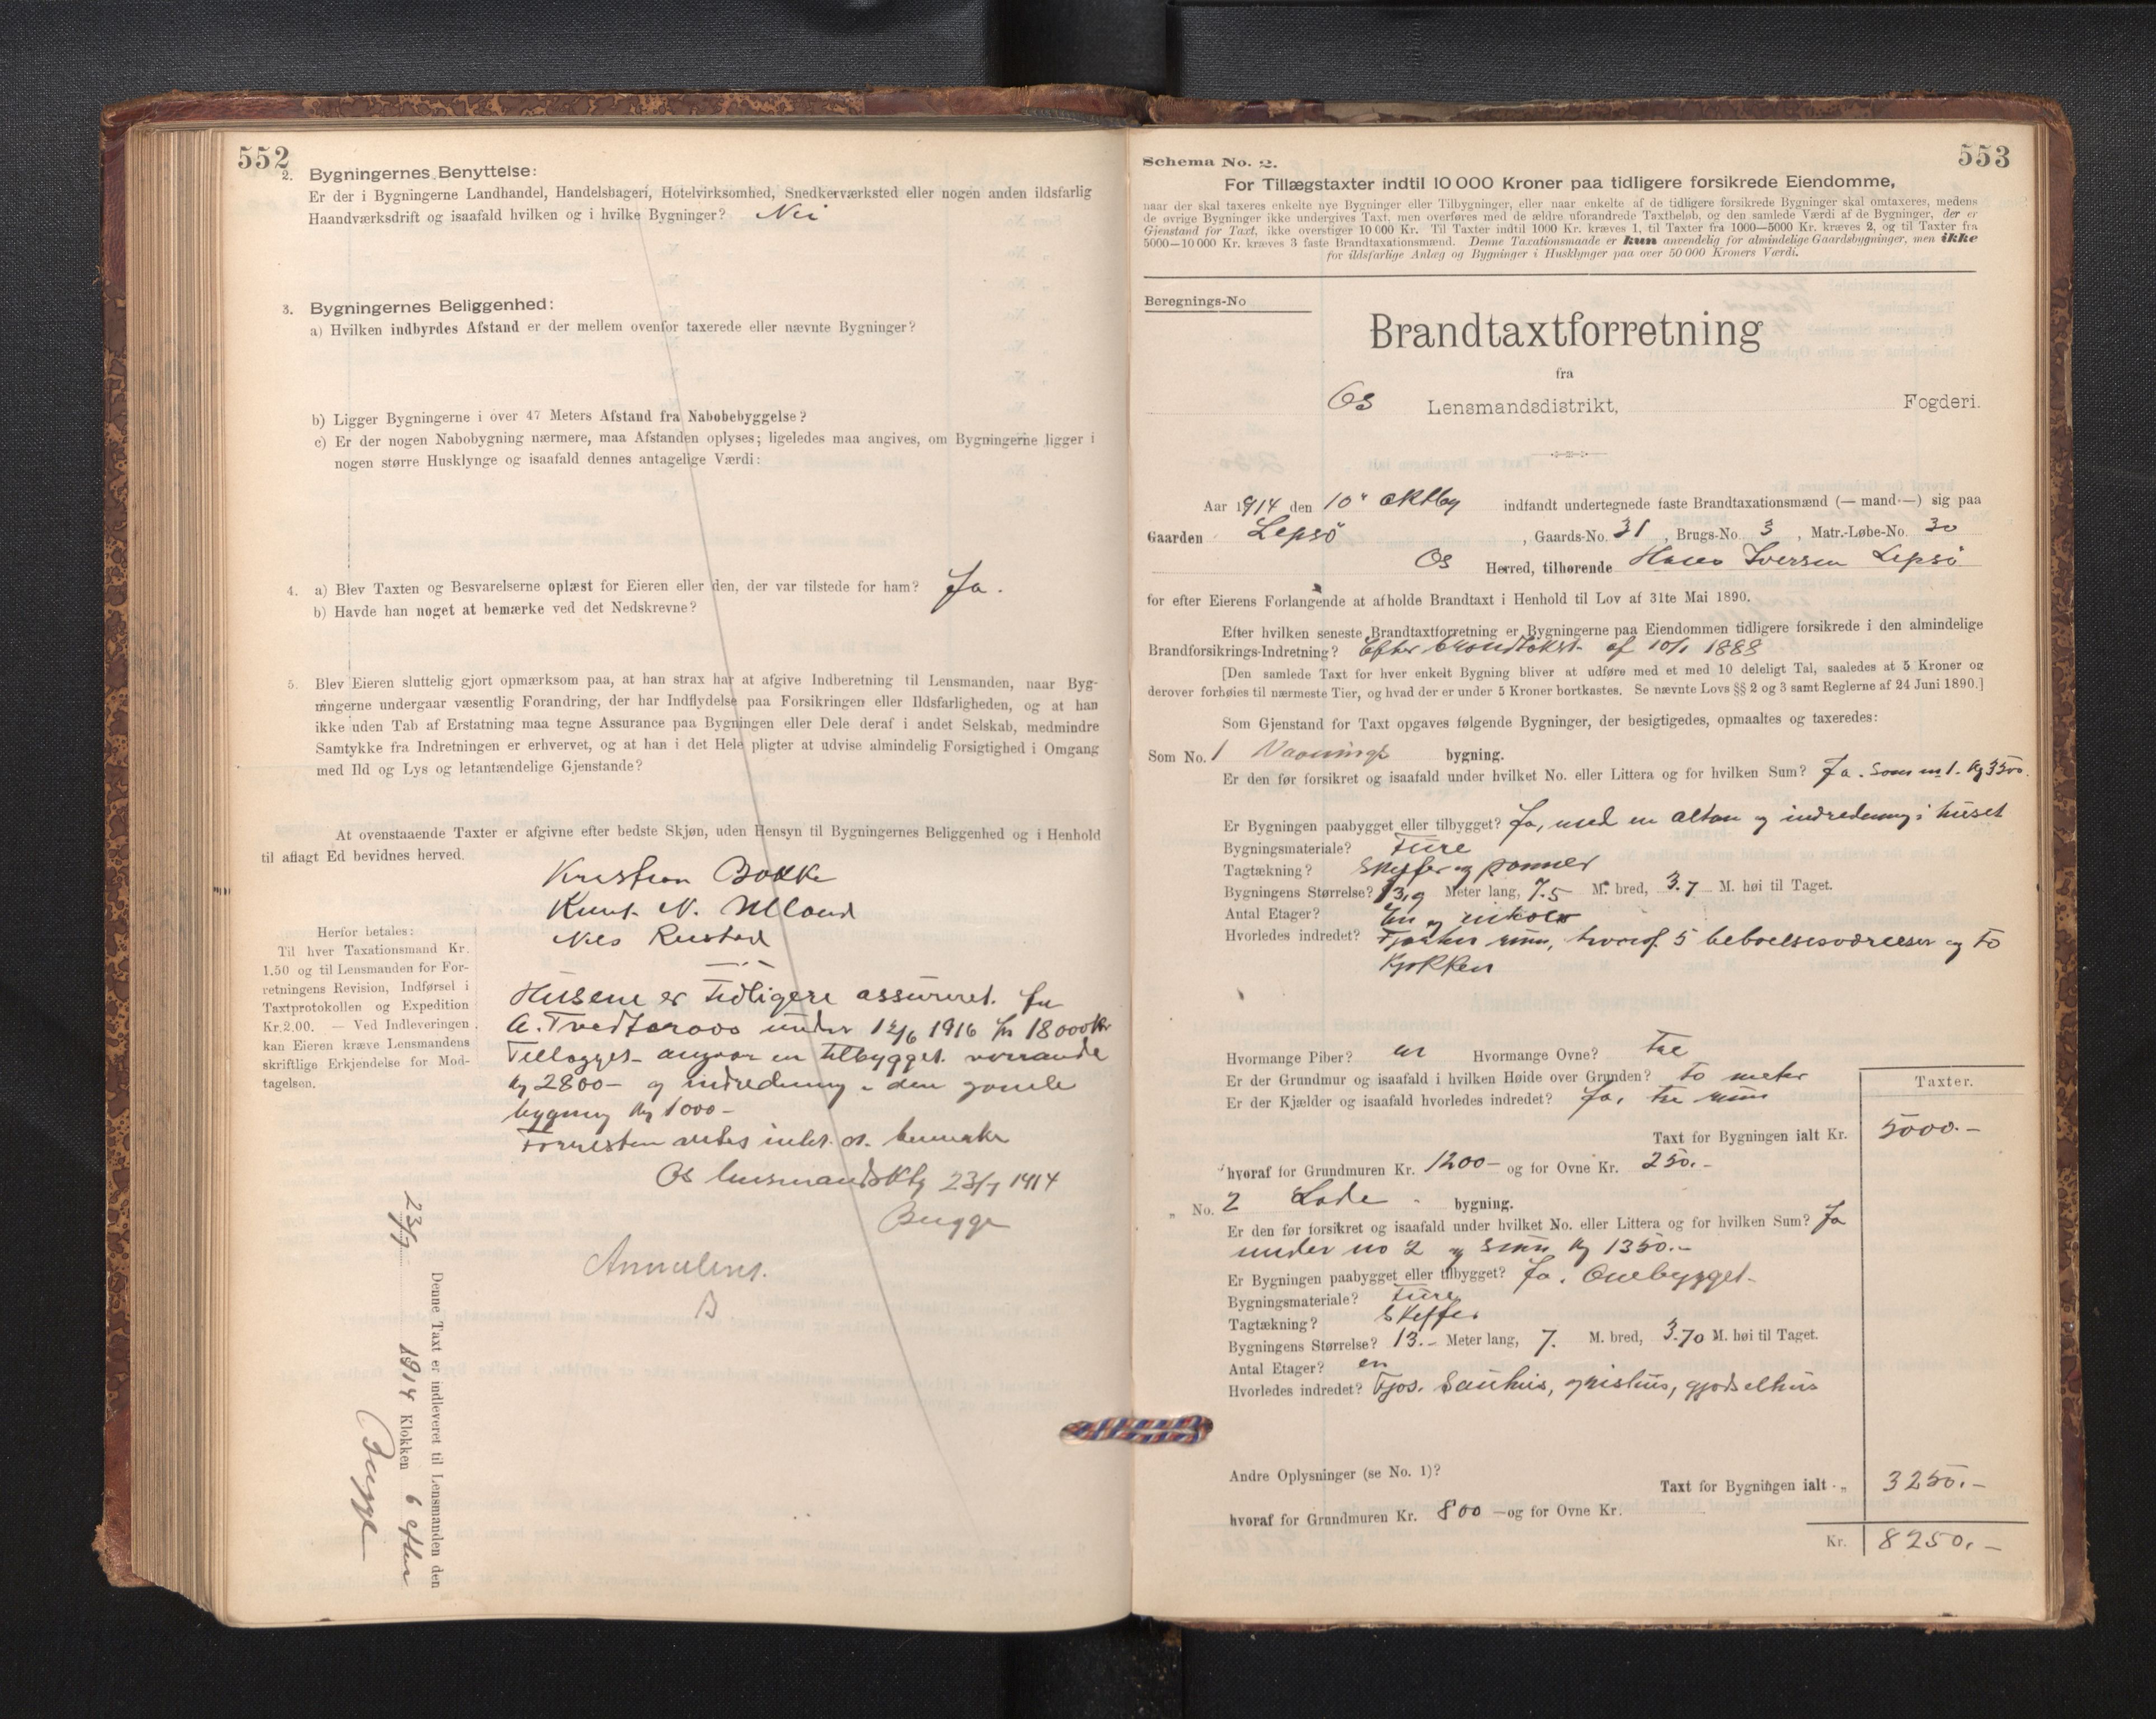 552
2. Bygningernes Benyttelse:
Er der i Bygningerne Landhandel, Handelsbageri, Hotelvirksomhed, Snedkerværksted eller nogen anden ildsfarlig
Haandværksdrift og isaafald hvilken og i hvilke Bygninger? Nei
3. Bygningernes Beliggenhed:
a) Hvilken indbyrdes Afstand er der mellem ovenfor taxerede eller nævnte Bygninger?
b) Ligger Bygningerne i over 47 Meters Afstand fra Nabobebyggelse?
c) Er der nogen Nabobygning nærmere, maa Afstanden oplyses; ligeledes maa angives, om Bygningerne ligger i
nogen større Husklynge og isaafald dennes antagelige Værdi:
4. a) Blev Taxten og Besvarelserne oplæst for Eieren eller den, der var tilstede for ham? Ja.
b) Havde han noget at bemærke ved det Nedskrevne?
5. Blev Eieren sluttelig gjort opmærksom paa, at han strax har at afgive Indberetning til Lensmanden, naar Byg-
ningerne undergaar væsentlig Forandring, der har Indflydelse paa Forsikringen eller Ildsfarligheden, og at han
ikke uden Tab af Erstatning maa tegne Assurance paa Bygningen eller Dele deraf i andet Selskab, medmindre
Samtykke fra Indretningen er erhvervet, og at han i det Hele pligter at udvise almindelig Forsigtighed i Omgang
med Ild og Lys og letantændelige Gjenstande?
At ovenstaaende Taxter er afgivne efter bedste Skjøn, uden Hensyn til Bygningernes Beliggenhed og i Henhold
til aflagt Ed bevidnes herved.
Kristian
Knut N. Ulland
Nils
Herfor betales:
Til hver Taxationsmand Kr.
1.50 og til Lensmanden for For-
retningens Revision, Indførsel i
Taxtprotokollen og Expedition
Kr. 2.00. — Ved Indleveringen
kan Eieren kræve Lensmandens
skriftlige Erkjendelse for Mod-
tagelsen.
Husene er tidligere assureret.
under 1916 18000 Kr
en tilbygget
2800- og indredning i den gamle
bygning Kr 1000-
intet at bemerke
Os 23/7 1914
Bugge
Annuleret.
B
Denne Taxt er indleveret til Lensmanden den
23/7 1914 Klokken 6 efter
Bugge
553
Schema No. 2.
For Tillægstaxter indtil 10 000 Kroner paa tidligere forsikrede Eiendomme,
naar der skal taxeres enkelte nye Bygninger eller Tilbygninger, eller naar enkelte af de tidligere forsikrede Bygninger skal omtaxeres, medens
de øvrige Bygninger ikke undergives Taxt, men overføres med de ældre uforandrede Taxtbeløb, og den samlede Værdi af de Bygninger, der er
Gjenstand for Taxt, ikke overstiger 10 000 Kr. Til Taxter indtil 1000 Kr. kræves 1, til Taxter fra 1000—5000 Kr. kræves 2, og til Taxter fra
5000—10 000 Kr. kræves 3 faste Brandtaxationsmænd. Denne Taxationsmaade er kun anvendelig for almindelige Gaardsbygninger, men ikke
for ildsfarlige Anlæg og Bygninger i Husklynger paa over 50 000 Kroners Værdi.
Beregnings-No
Brandtaxtforretning
fra
Os Lensmandsdistrikt, Fogderi.
Aar 1914 den 10 indfandt undertegnede faste Brandtaxationsmænd (— mand —) sig paa
Gaarden Lepsö, Gaards-No. 31, Brugs-No. 3, Matr.-Løbe-No. 30
Os Herred, tilhørende Hans Iversen Lepsö
for efter Eierens Forlangende at afholde Brandtaxt i Henhold til Lov af 31te Mai 1890.
Efter hvilken seneste Brandtaxtforretning er Bygningerne paa Eiendommen tidligere forsikrede i den almindelige
Brandforsikrings-Indretning? Efter af 10/1 1888
[Den samlede Taxt for hver enkelt Bygning bliver at udføre med et med 10 deleligt Tal, saaledes at 5 Kroner og
derover forhøies til nærmeste Tier, og hvad der er under 5 Kroner bortkastes. Se nævnte Lovs §§ 2 og 3 samt Reglerne af 24 Juni 1890.]
Som Gjenstand for Taxt opgaves følgende Bygninger, der besigtigedes, opmaaltes og taxeredes:
Som No. 1 Vaanings bygning.
Er den før forsikret og isaafald under hvilket No. eller Littera og for hvilken Sum? Ja. Som no 1. Kr 3500.
Er Bygningen paabygget eller tilbygget? Ja, med en altan og indredning i huset
Bygningsmateriale? Fure
Tagtækning? Skiffer og panner
Bygningens Størrelse? 13,9 Meter lang, 7.5 M. bred, 3.7 M. høi til Taget.
Antal Etager? En og
Hvorledes indredet? rum, hvoraf 5 beboelsesværelser og to
Kjøkken
Hvormange Piber? en Hvormange Ovne? tre
Er der Grundmur og isaafald i hvilken Høide over Grunden? to meter
Er der Kjælder og isaafald hvorledes indredet? Ja, tre rum
Taxter.
Taxt for Bygningen ialt Kr. 5000.-
hvoraf for Grundmuren Kr. 1200- og for Ovne Kr. 250.-
" No. 2 Lade bygning.
Er den før forsikret og isaafald under hvilket No. eller Littera og for hvilken Sum? Ja
under no 2 og sum Kr 1350.-
Er Bygningen paabygget eller tilbygget? Ja. Ombygget-
Bygningsmateriale? Fure
Tagtækning? Skiffer
Bygningens Størrelse? 13.- Meter lang, 7. M. bred, 3.70 M. høi til Taget.
Antal Etager? en
Hvorledes indredet? Fjos. Sauhus, grishus, gjødselhus
Andre Oplysninger (se No. 1)?
Taxt for Bygningen ialt " 3250.-
hvoraf for Grundmuren Kr. 800 — og for Ovne Kr.
Kr. 8250.-